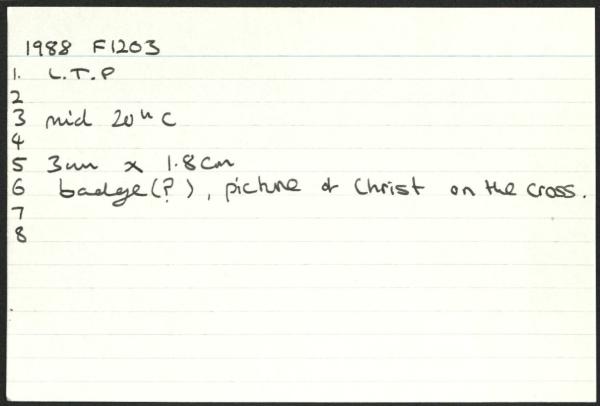 1988 F1203
1. L.T.P
2
3 mid 20th C
4
5 3cm x 1.8cm
6 badge(?), picture of Christ on the cross.
7
8